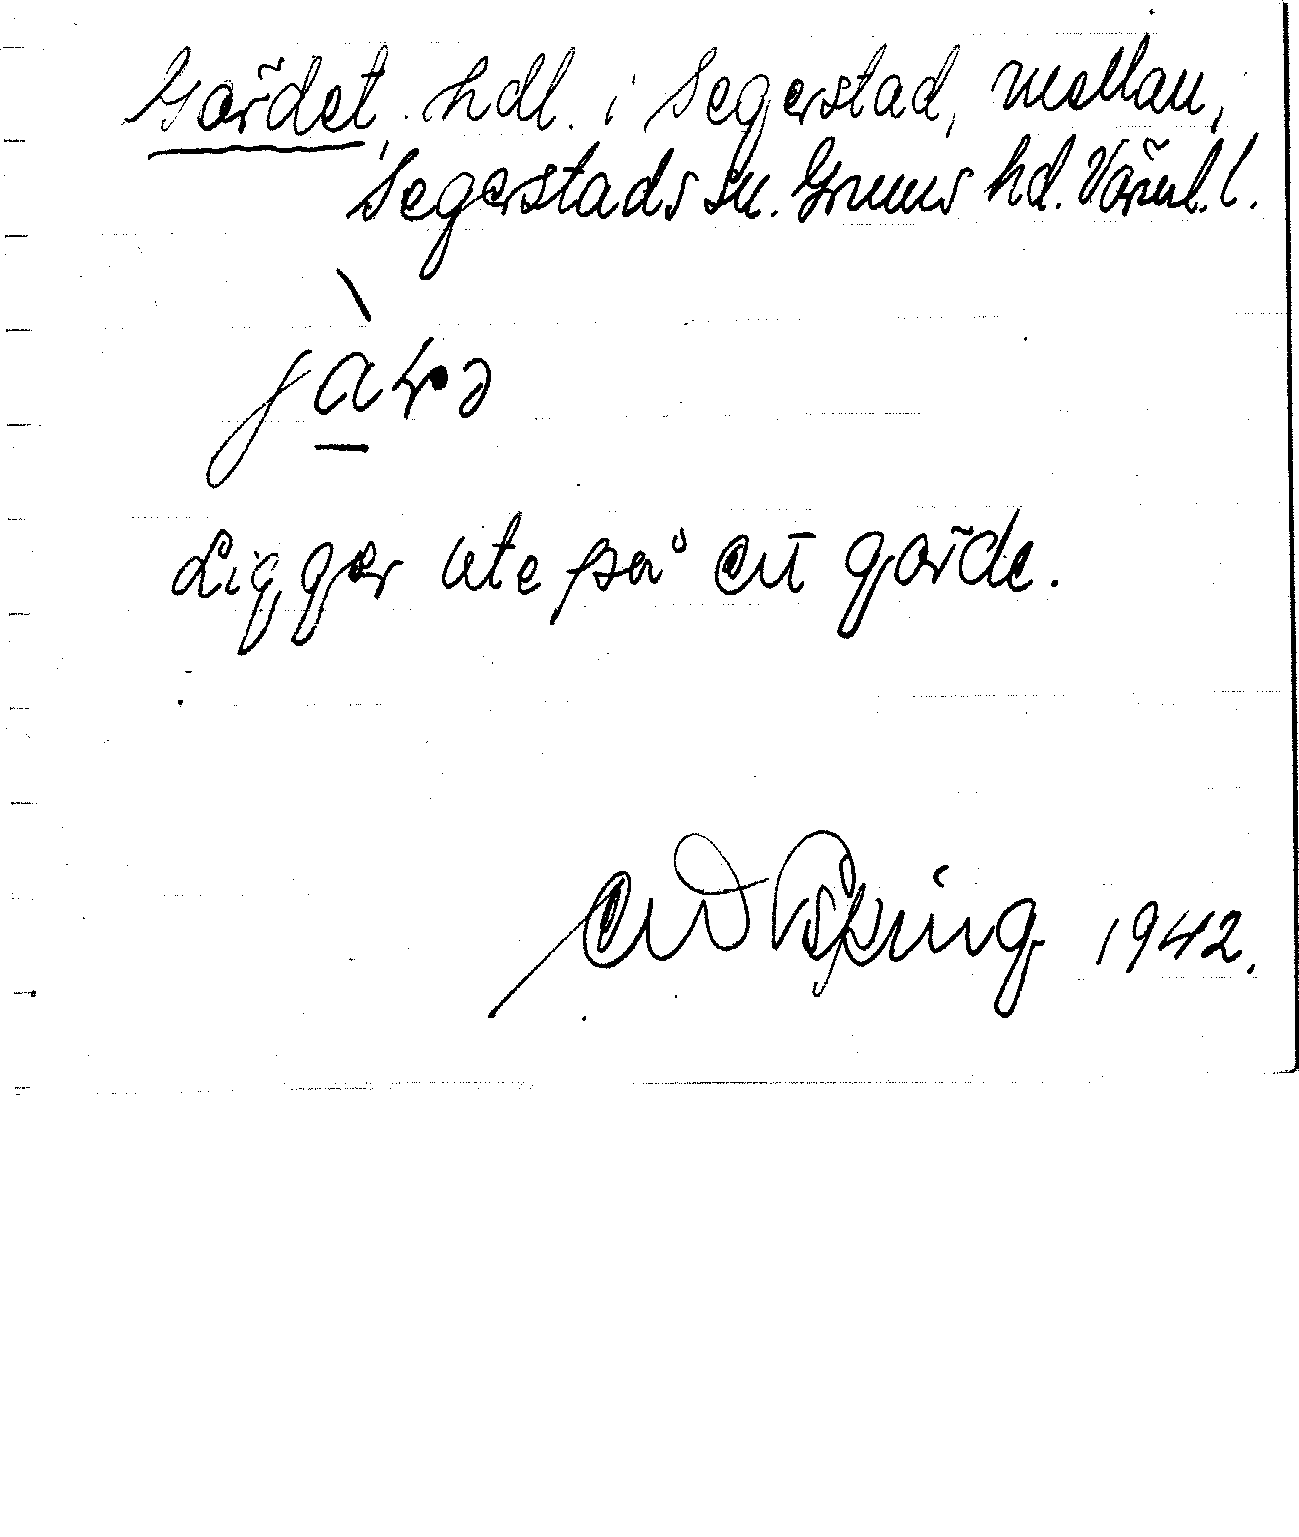 Gärdet, hdl. i Segerstad, mellan,
Segerstads sn. Grums hd. Värml. l.
Ligger ute på ett gärde.
1942.